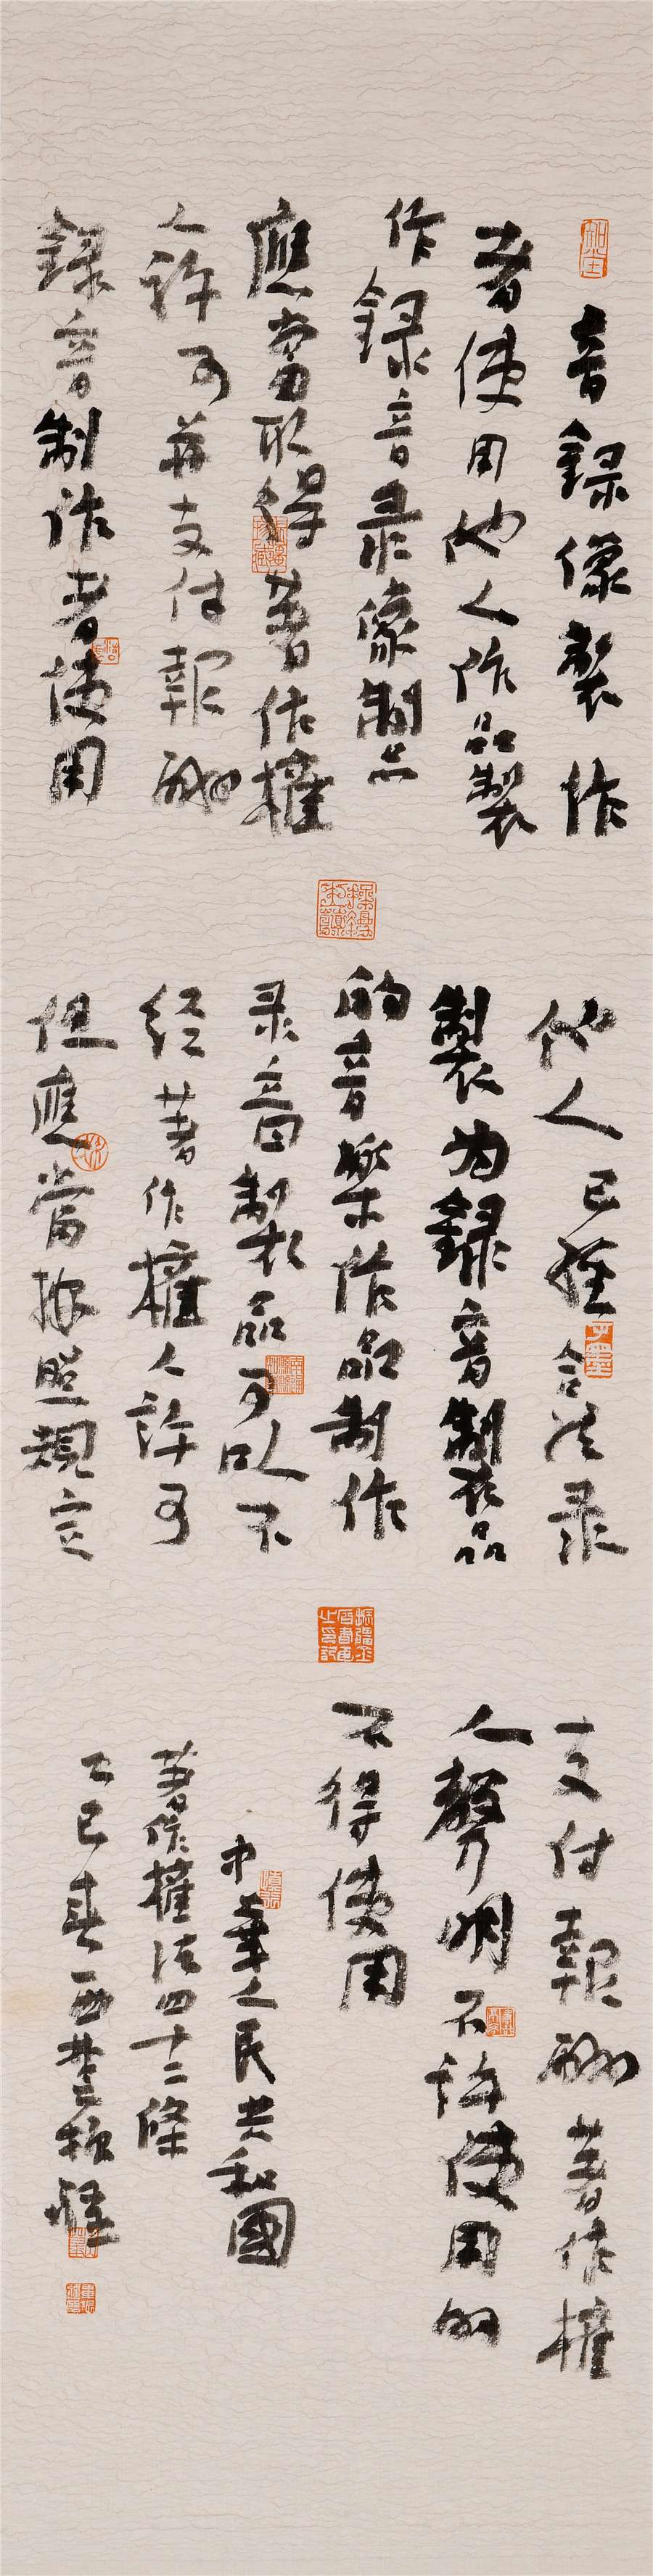 音録像製作
者使用他人作品製
作録音录像製品
應當取得著作權
人許可并支付報酬
録音制作者使用
他人已經合法录
製为録音製品
的音樂作品制作
录音製品可以不
经著作權人許可
但應當按照規定
支付報酬著作權
人聲明不許使用的
不得使用
中華人民共和國
著作權法四十二條
乙巳春西楚振